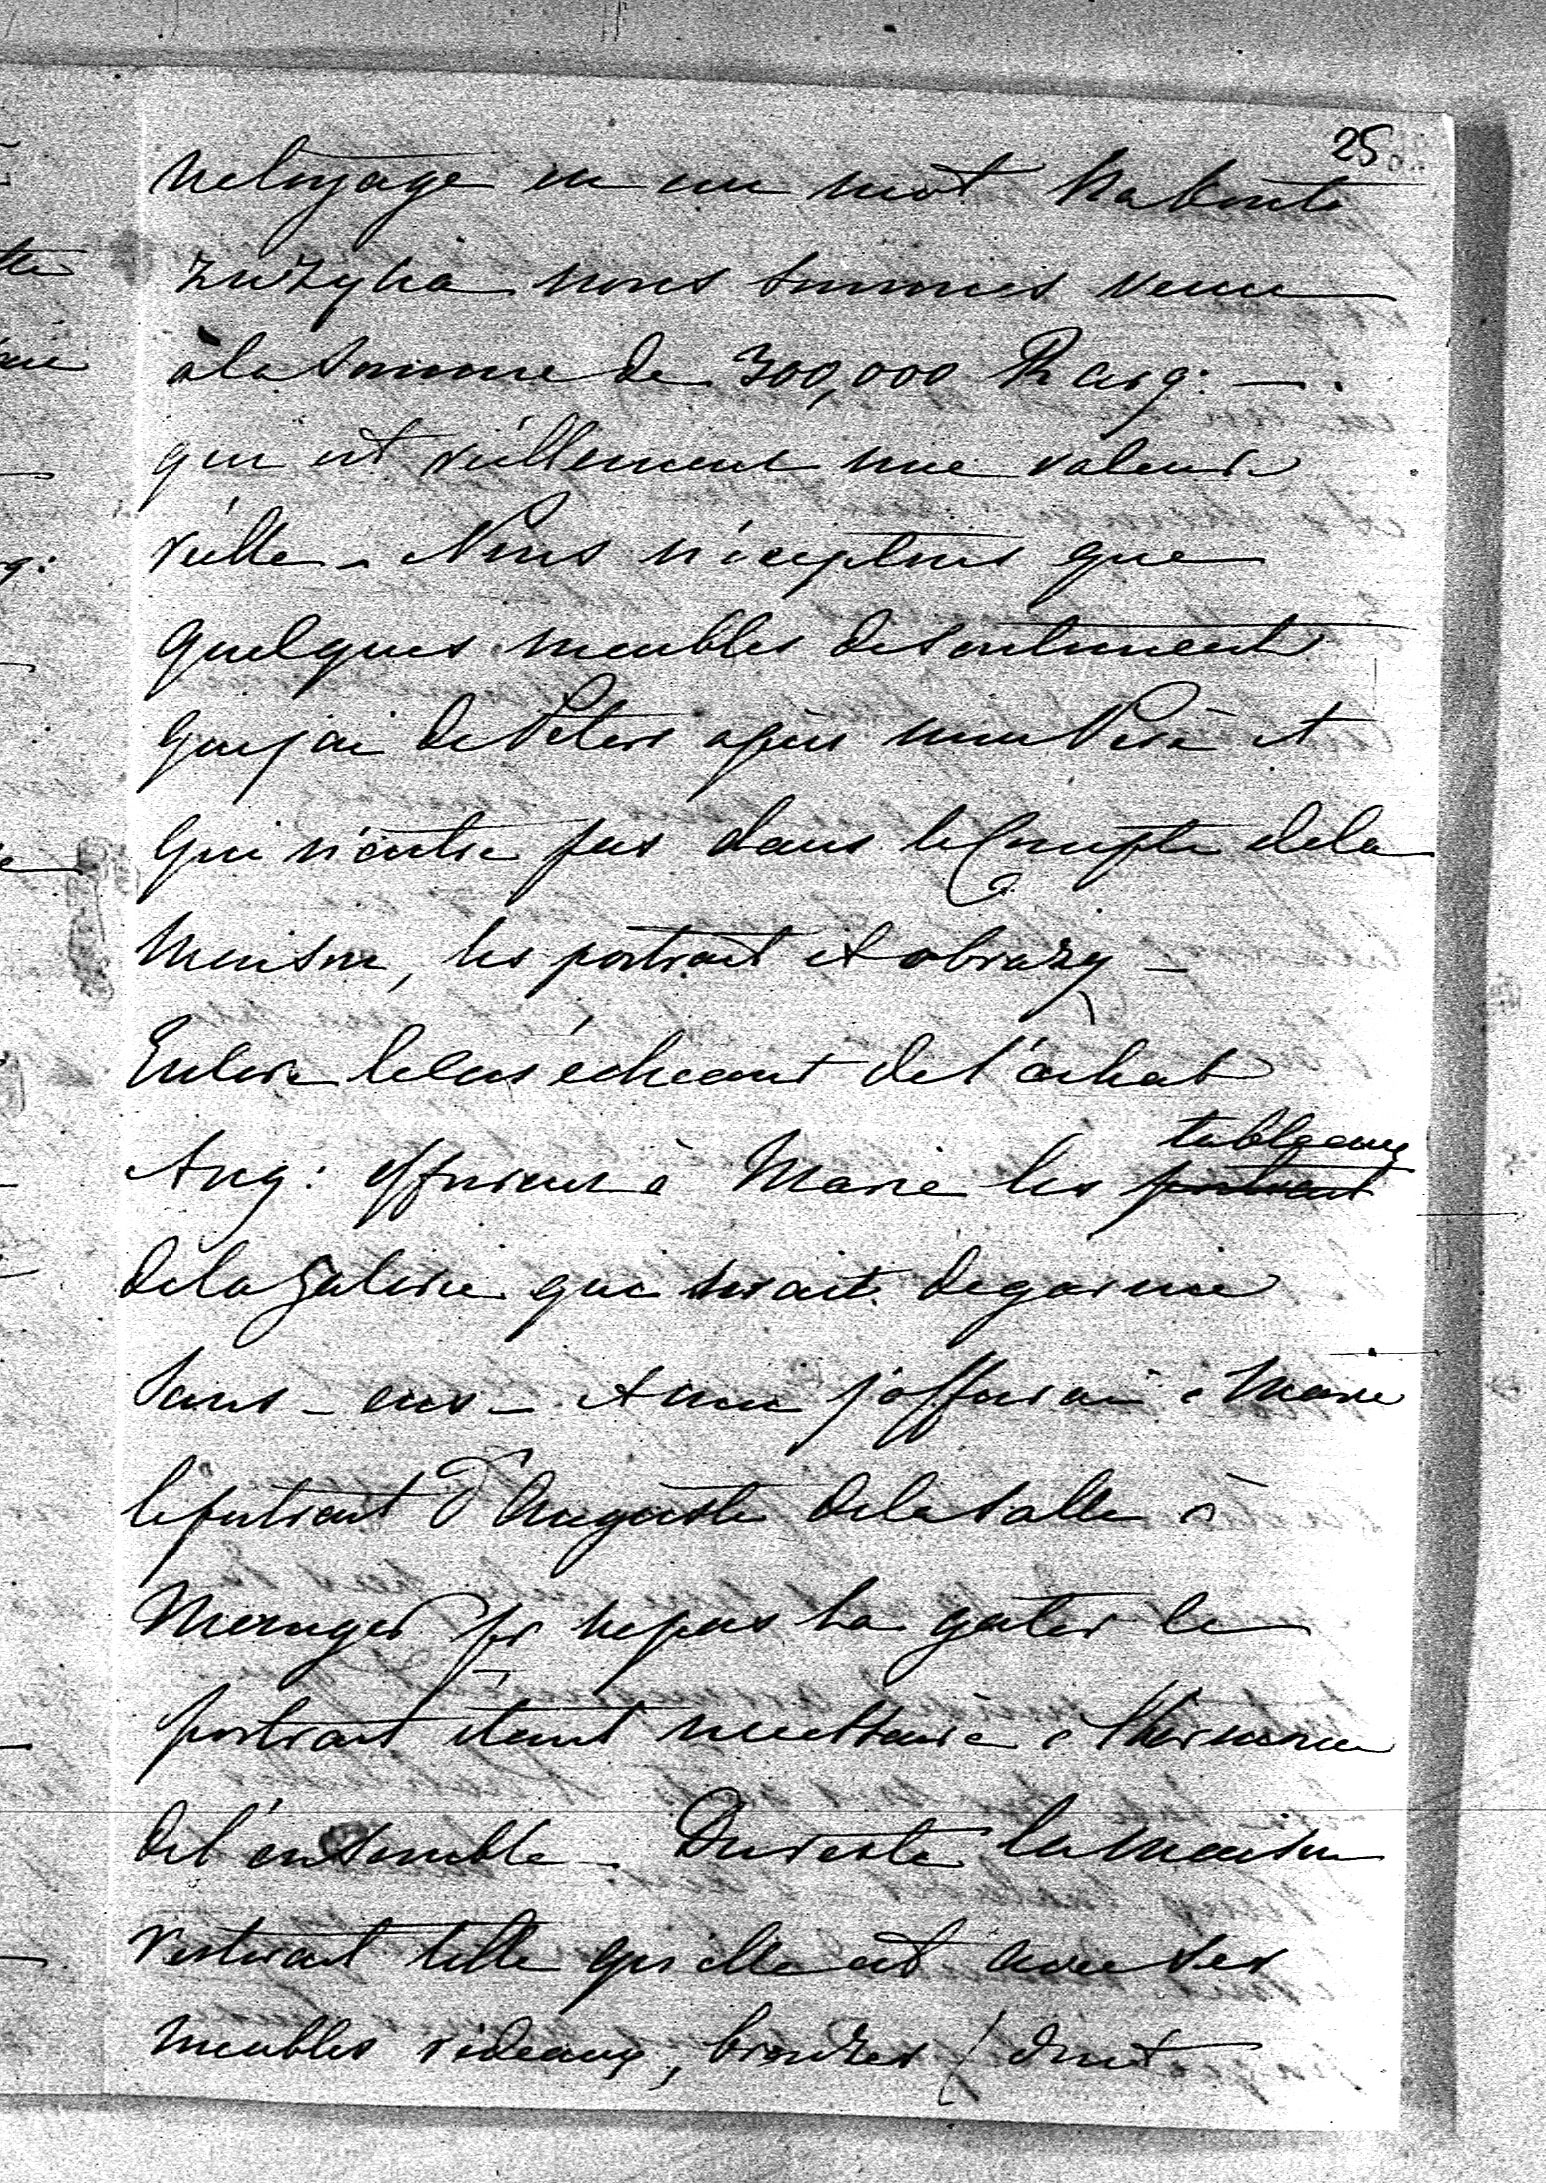 25
Netoyage en un mot
nous sommes venu
à la somme de 300,000 R arg: —
qui est réellement une valeure
réelle – Nous n'exceptons que
quelques meubles de sentiment
que j'ai de Peters après mon Père et
qui n'entre pas dans le Compte de la
Maison, les portrait et obrazy –
Encore le cas échéant de l'achat
Aug: offrirent à Marie les tableaux portrait
de la galerie qui serait dégarnie
sans – eux – et moi j'offrirai à Marie
le portrait d'Auguste de la salle à
Manger pr ne pas la gater le
portrait étant necessaire à l'harmonie
de l'ensemble – Du reste la maison
resterait telle qu'elle est avec ses
meubles rideaux, bronzes (dont